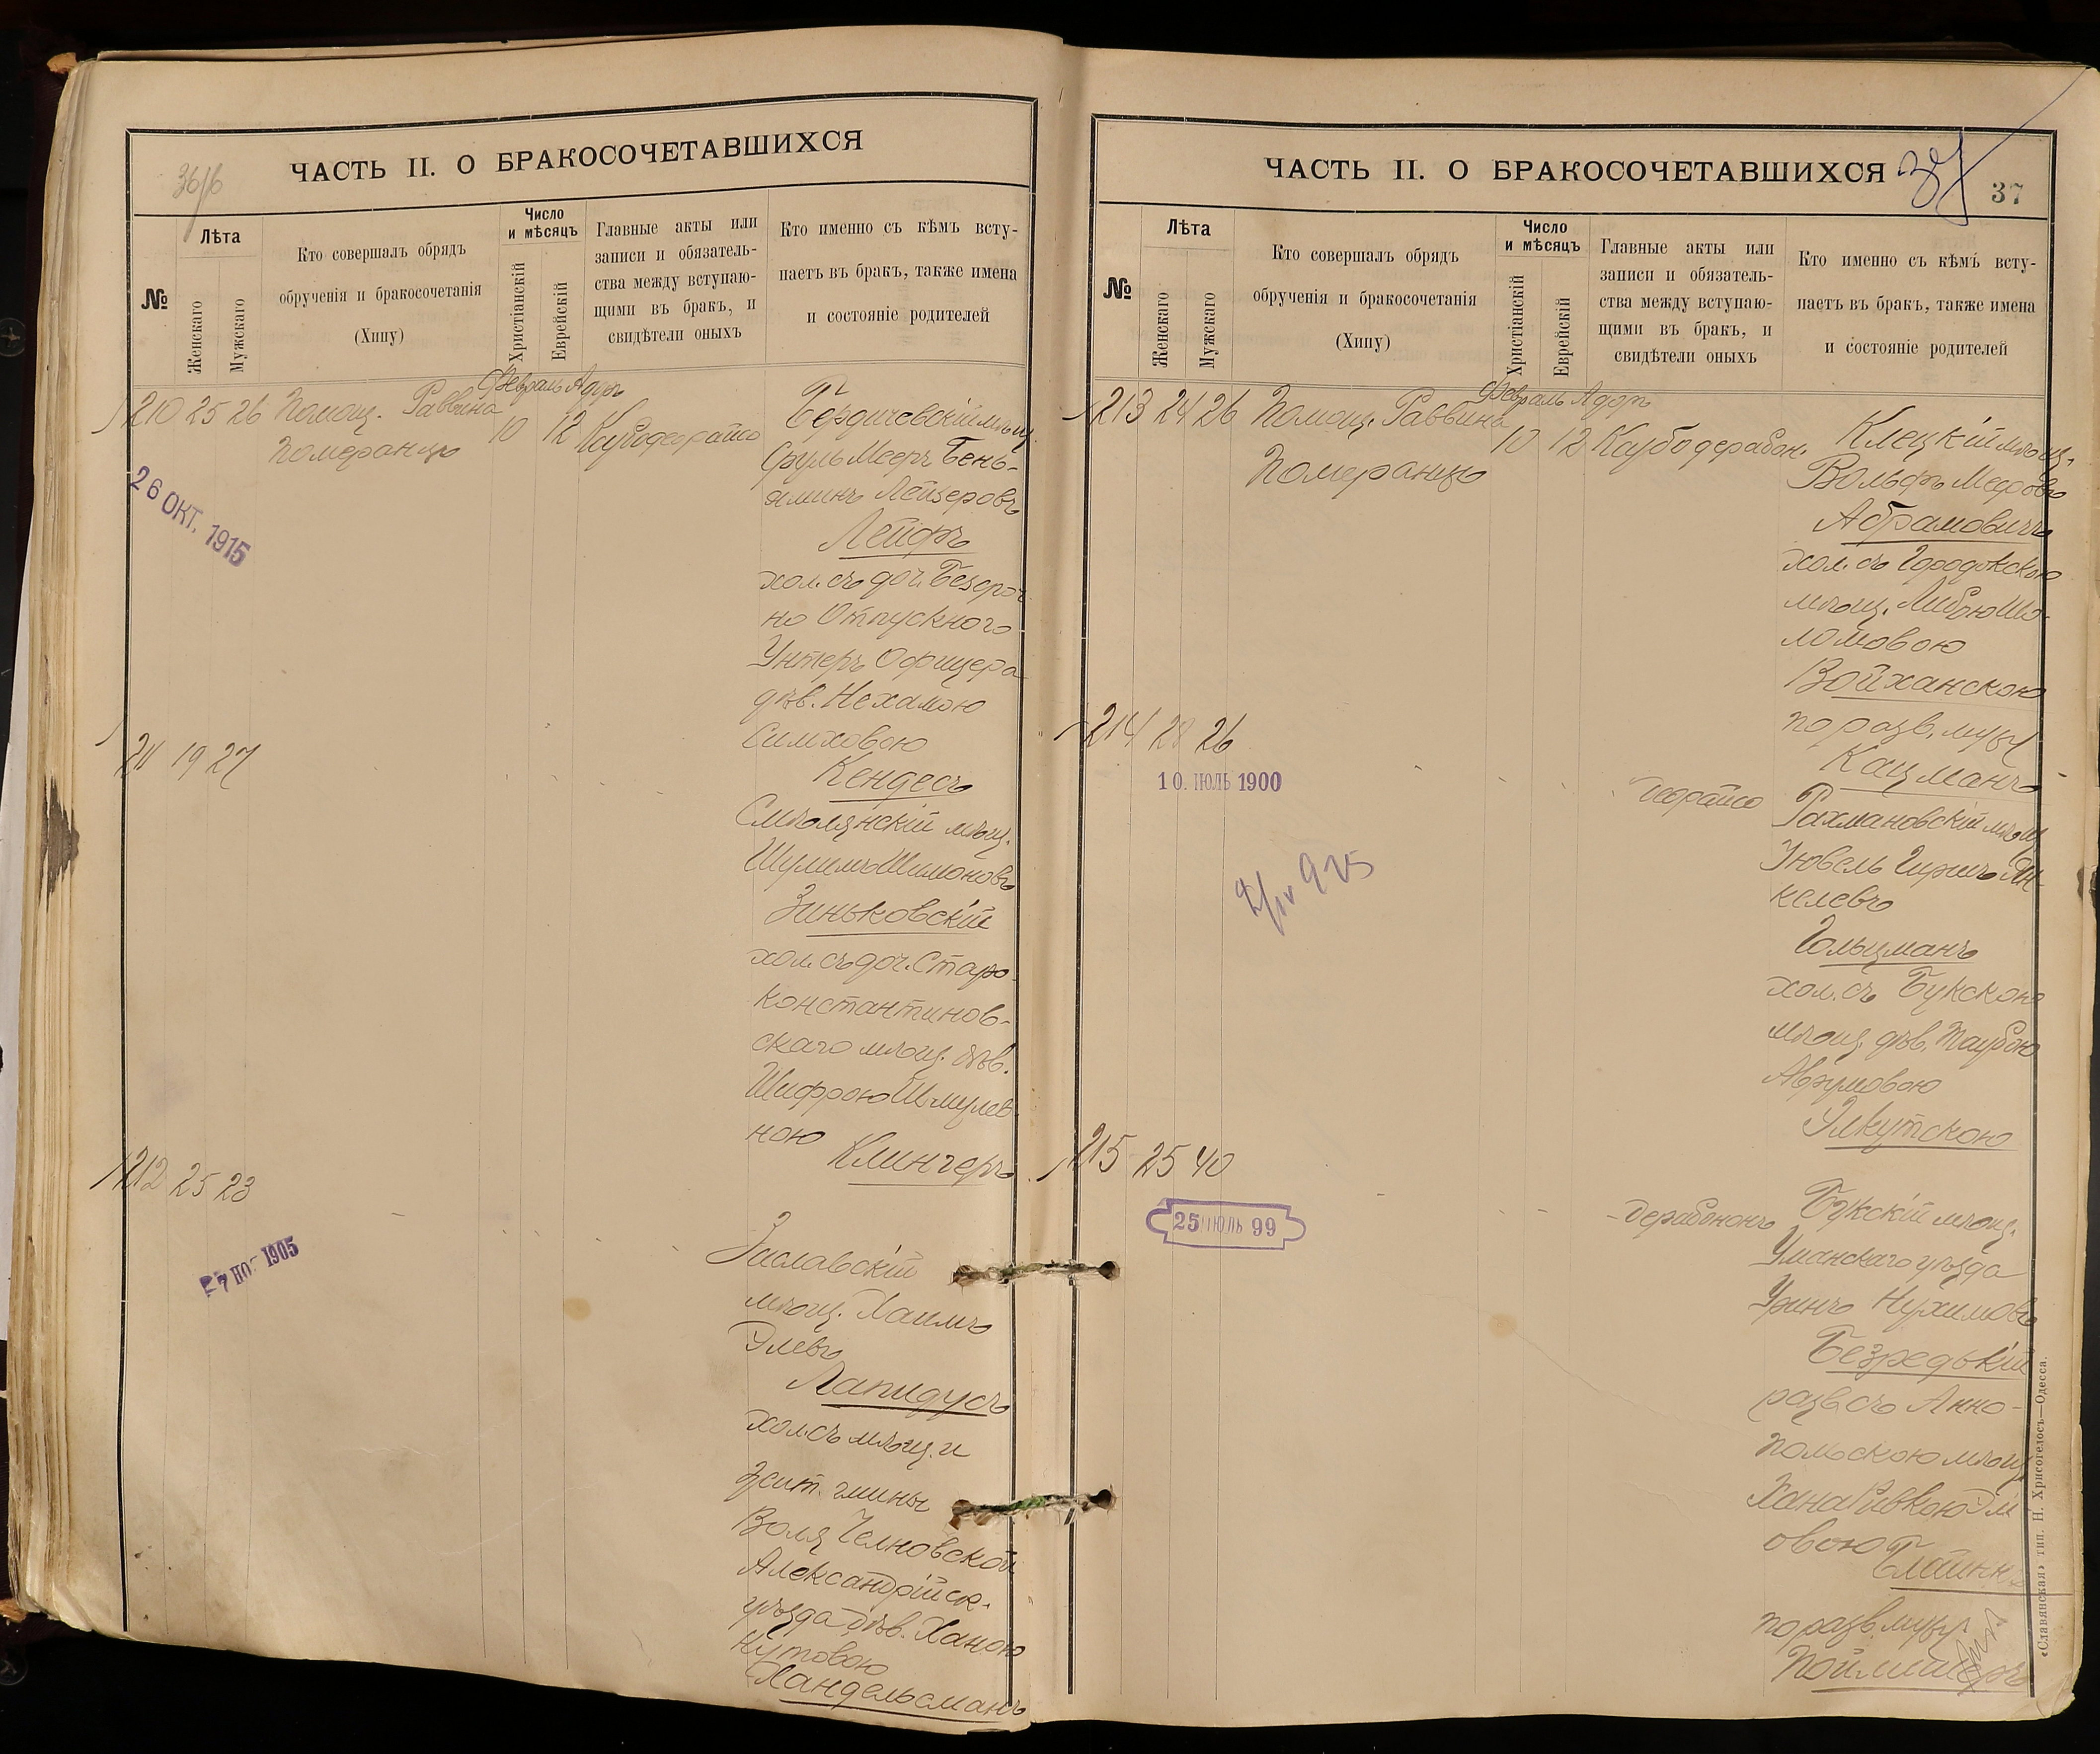 36/б
ЧАСТЬ II. О БРАКОСОЧЕТАВШИХСЯ
№
Лѣта
Женскаго
Мужскаго
Кто совершалъ обрядъ
обрученія и бракосочетанія
(Хипу)
Число
и мѣсяцъ
Христіанскій
Еврейскій
Главные акты или
записи и обязатель-
ства между вступаю-
щими въ бракъ, и
свидѣтели оныхъ
Кто именно съ кѣмъ всту-
паетъ въ бракъ, также имена
и состояніе родителей
Февраль Адаръ
210 25 26 Помощ. Раввина 10 12
Померанцъ
26 ОКТ. 1915
Бердичевскій мѣщ.
Сруль Мееръ Бень-
яминъ Лейзеровъ
Лейфъ
хол. съ доч. Безсроч
но Отпускного
Унтеръ Офицера
дѣв. Нехамою
Симховою
Кендесъ
211 19 27
Смѣлянскій мѣщ.
Шулимъ Шимоновъ
Зиньковскій
хол. съ доч. Старо-
константинов-
скаго мѣщ. дѣв.
Шифрою Шмулев-
ною
Клингеръ
212 25 23
7 НО 1905
Заславскій
мѣщ. Хаимъ
Элевъ
Лапидусъ
хол. съ мѣщ. и
жит. гмины
Воля Челновской
Александрійск.
уѣзда дѣв. Ханою
Нутовою
Хандельсманъ
ЧАСТЬ II. О БРАКОСОЧЕТАВШИХСЯ
37
37
№
Лѣта
Женскаго
Мужскаго
Кто совершалъ обрядъ
обрученія и бракосочетанія
(Хипу)
Число
и мѣсяцъ
Христіанскій
Еврейскій
Главные акты или
записи и обязатель-
ства между вступаю-
щими въ бракъ, и
свидѣтели оныхъ
Кто именно съ кѣмъ всту-
паетъ въ бракъ, также имена
и состояніе родителей
Февраль Адаръ
213 24 26 Помощ. Раввина 10 12 Каубодерабон.
Померанцъ
Клецкій мѣщ.
Вольфъ Мееровъ
Абрамовичъ
хол. съ Городокскою
мѣщ. Либою Шо-
ломовою
Войханскою
по разв. мужу
Кацманъ
214 28 26
10. ІЮЛЬ 1900
2/IV 925
деорайсо
Рахмановскій мѣщ.
Зювель Гиршъ Ян-
келевъ
Гольцманъ
хол. съ Букскою
мѣщ. дѣв. Таубою
Аврумовою
Элкутскою
215 25 40
25 ІЮЛЬ 99
-дерабононъ
Букскій мѣщ.
Уманскаго уѣзда
Уринъ Нухимовъ
Безредькій
разв. съ Анно-
польскою мѣщ.
Хана Ривкою Эл-
овою
по разв. мужу
«Славянская» тип. Н. Хрисогелосъ—Одесса.